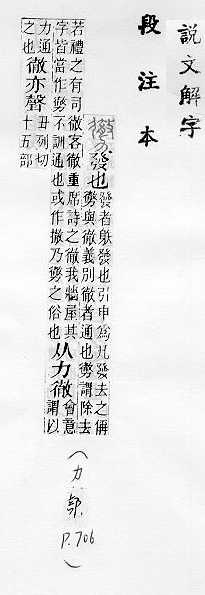 說文解字
段注本
勶 發也 發者䠶發也引申爲凡發去之偁
勶與徹義別徹者通也勶謂除去
若禮之有司徹客徹重席詩之徹我牆屋其
字皆當作勶不訓通也或作撤乃勶之俗也 从力徹 會意
謂以
力通
之也 徹亦聲 丑列切
十五部
(力部 P.706)